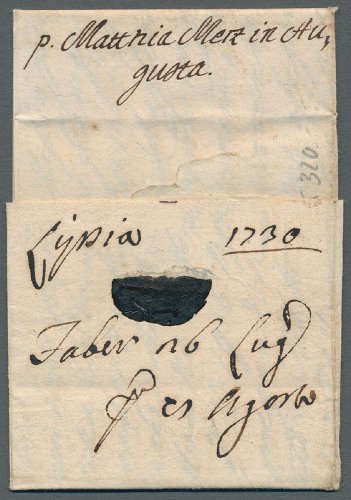 p. Matthia Merz in Au,
gusta.
320.-
Lipsia 1730
Faber 26 Lug
21 Agosto